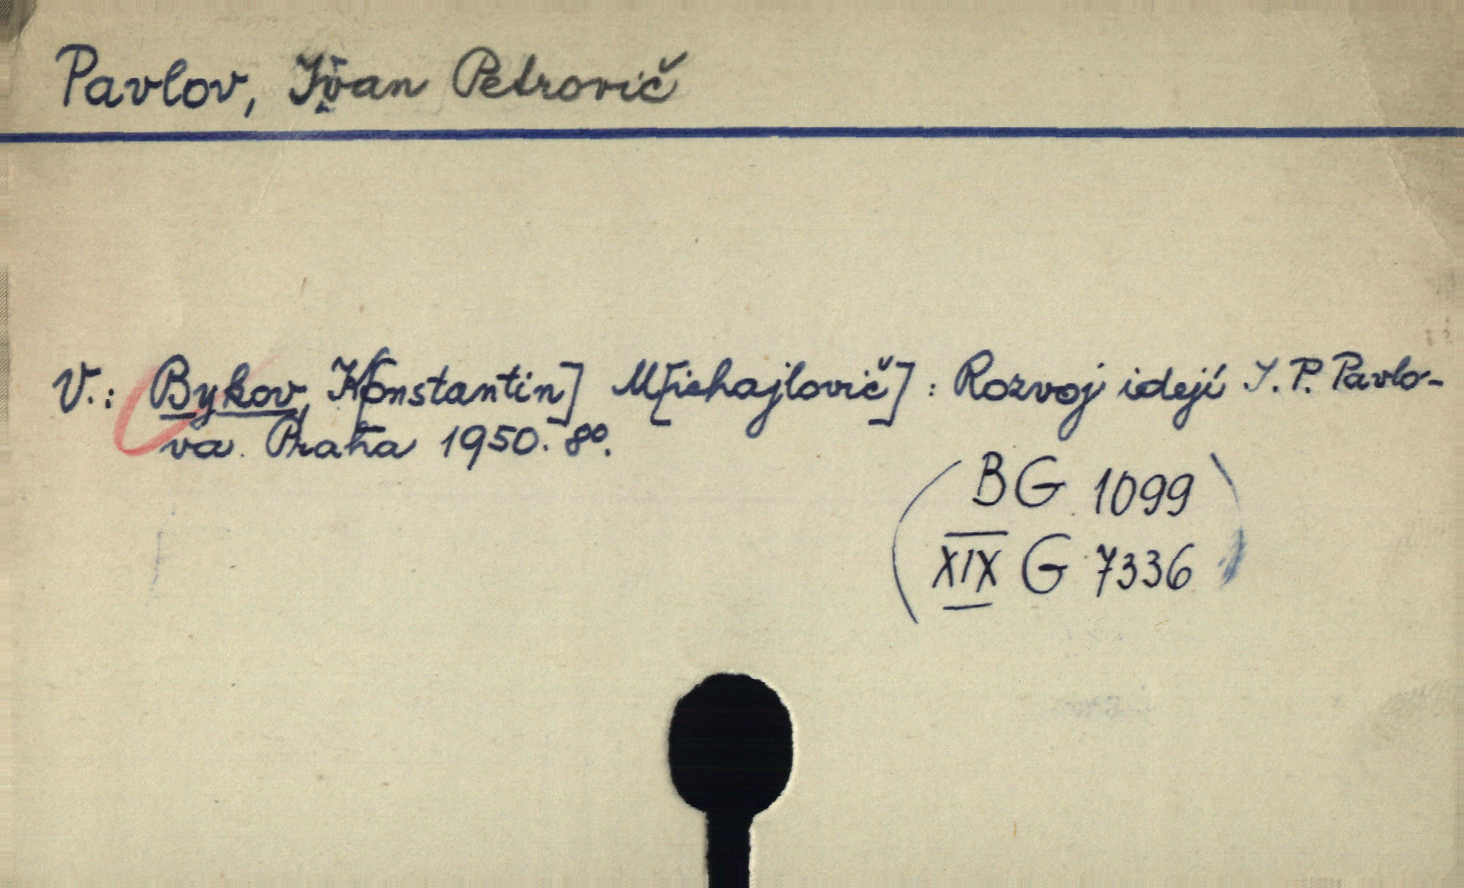 Pavlov, Ivan Petrovič
V.: Bykov, K[onstantin] M[ichajlovič]: Rozvoj idejí I. P. Pavlo-
va. Praha 1950. 8º.
BG 1099
XIX G 7336